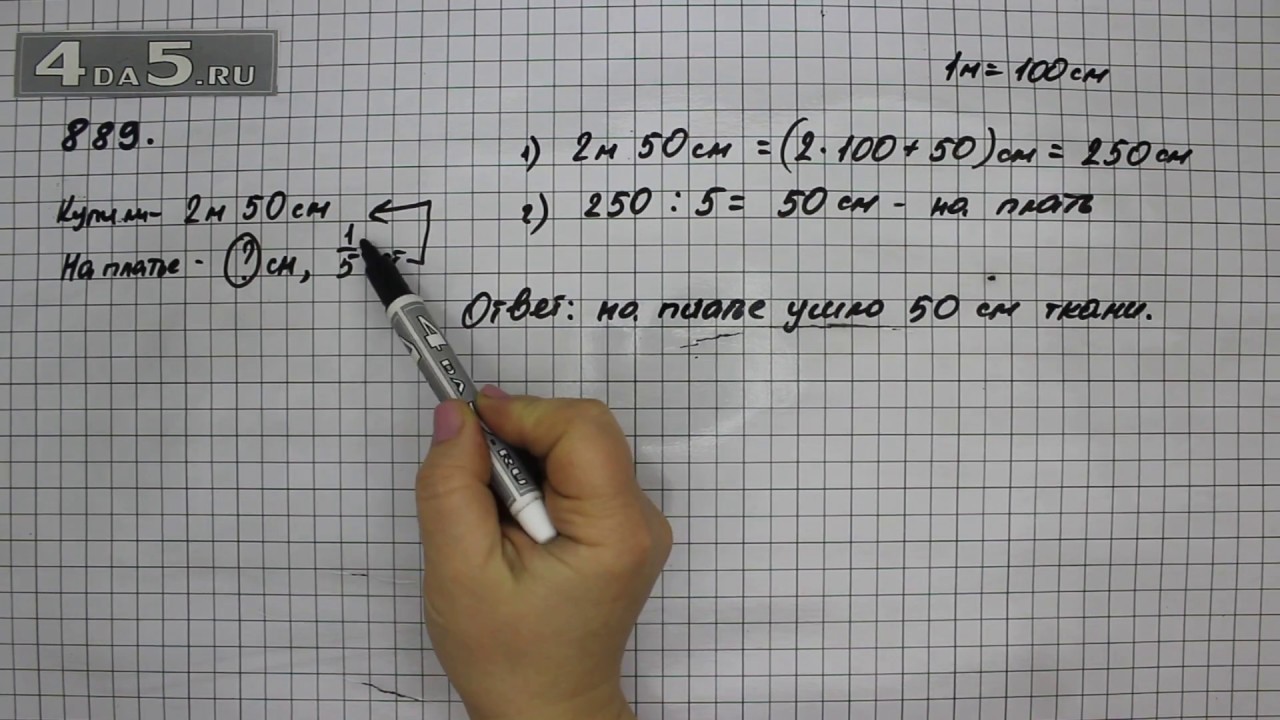 4DA5.RU
1м = 100см
889.
Купили - 2м 50см
На платье - ? см, 1/5 от
1) 2м 50см = (2·100+50)см = 250см
2) 250 : 5 = 50см - на плать
Ответ: на платье ушло 50 см ткани.
4DA5.RU